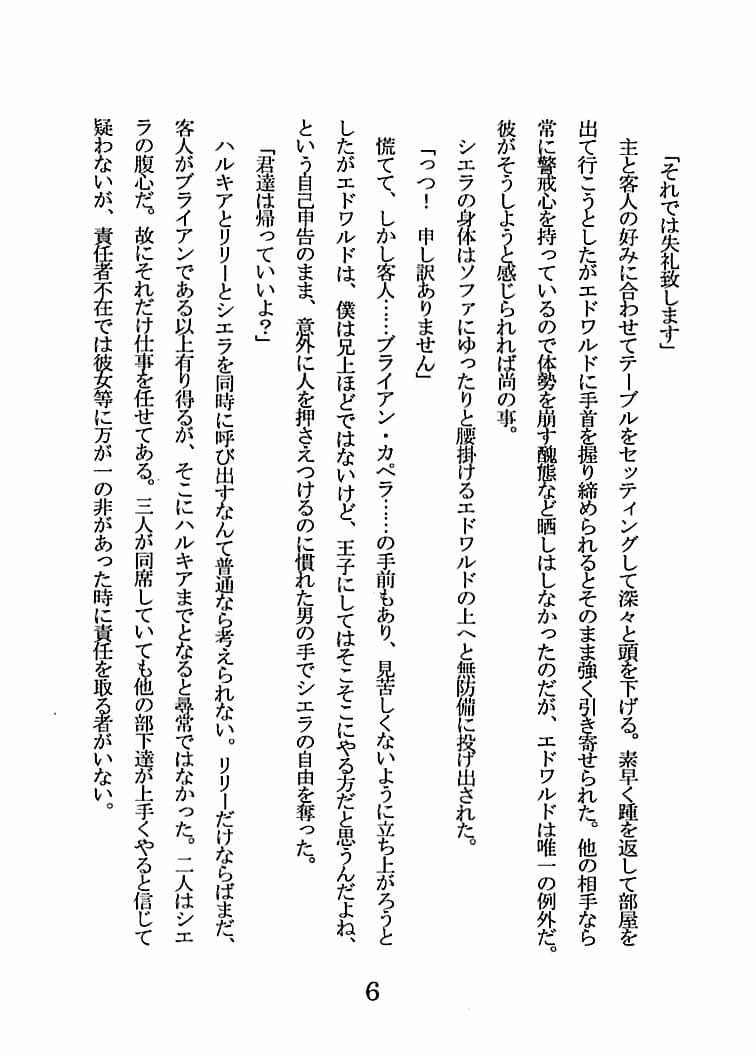 「それでは失礼致します」
主と客人の好みに合わせてテーブルをセッティングして深々と頭を下げる。素早く踵を返して部屋を
出て行こうとしたがエドワルドに手首を握り締められるとそのまま強く引き寄せられた。他の相手なら
常に警戒心を持っているので体勢を崩す醜態など晒しはしなかったのだが、エドワルドは唯一の例外だ。
彼がそうしようと感じられれば尚の事。
シエラの身体はソファにゆったりと腰掛けるエドワルドの上へと無防備に投げ出された。
「っつ！　申し訳ありません」
慌てて、しかし客人……ブライアン・カペラ……の手前もあり、見苦しくないように立ち上がろうと
したがエドワルドは、僕は兄上ほどではないけど、王子にしてはそこそこにやる方だと思うんだよね、
という自己申告のまま、意外に人を押さえつけるのに慣れた男の手でシエラの自由を奪った。
「君達は帰っていいよ？」
ハルキアとリリーとシエラを同時に呼び出すなんて普通なら考えられない。リリーだけならばまだ、
客人がブライアンである以上有り得るが、そこにハルキアまでとなると尋常ではなかった。二人はシエ
ラの腹心だ。故にそれだけ仕事を任せてある。三人が同席していても他の部下達が上手くやると信じて
疑わないが、責任者不在では彼女等に万が一の非があった時に責任を取る者がいない。
6